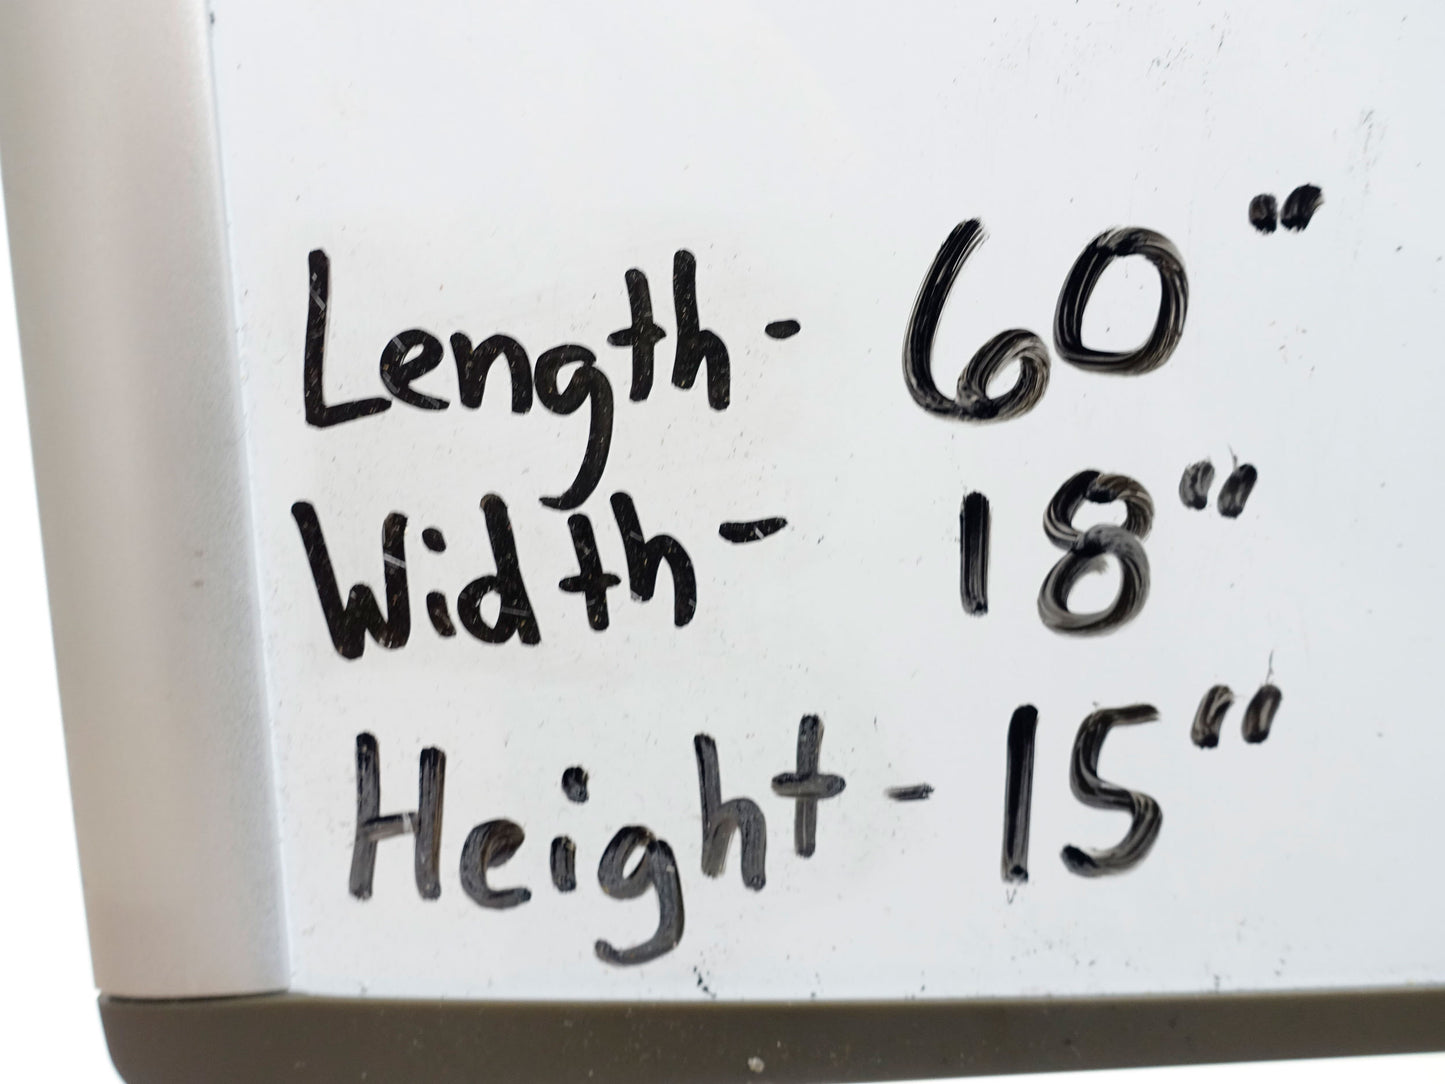 Length- 60"
Width- 18"
Height- 15"